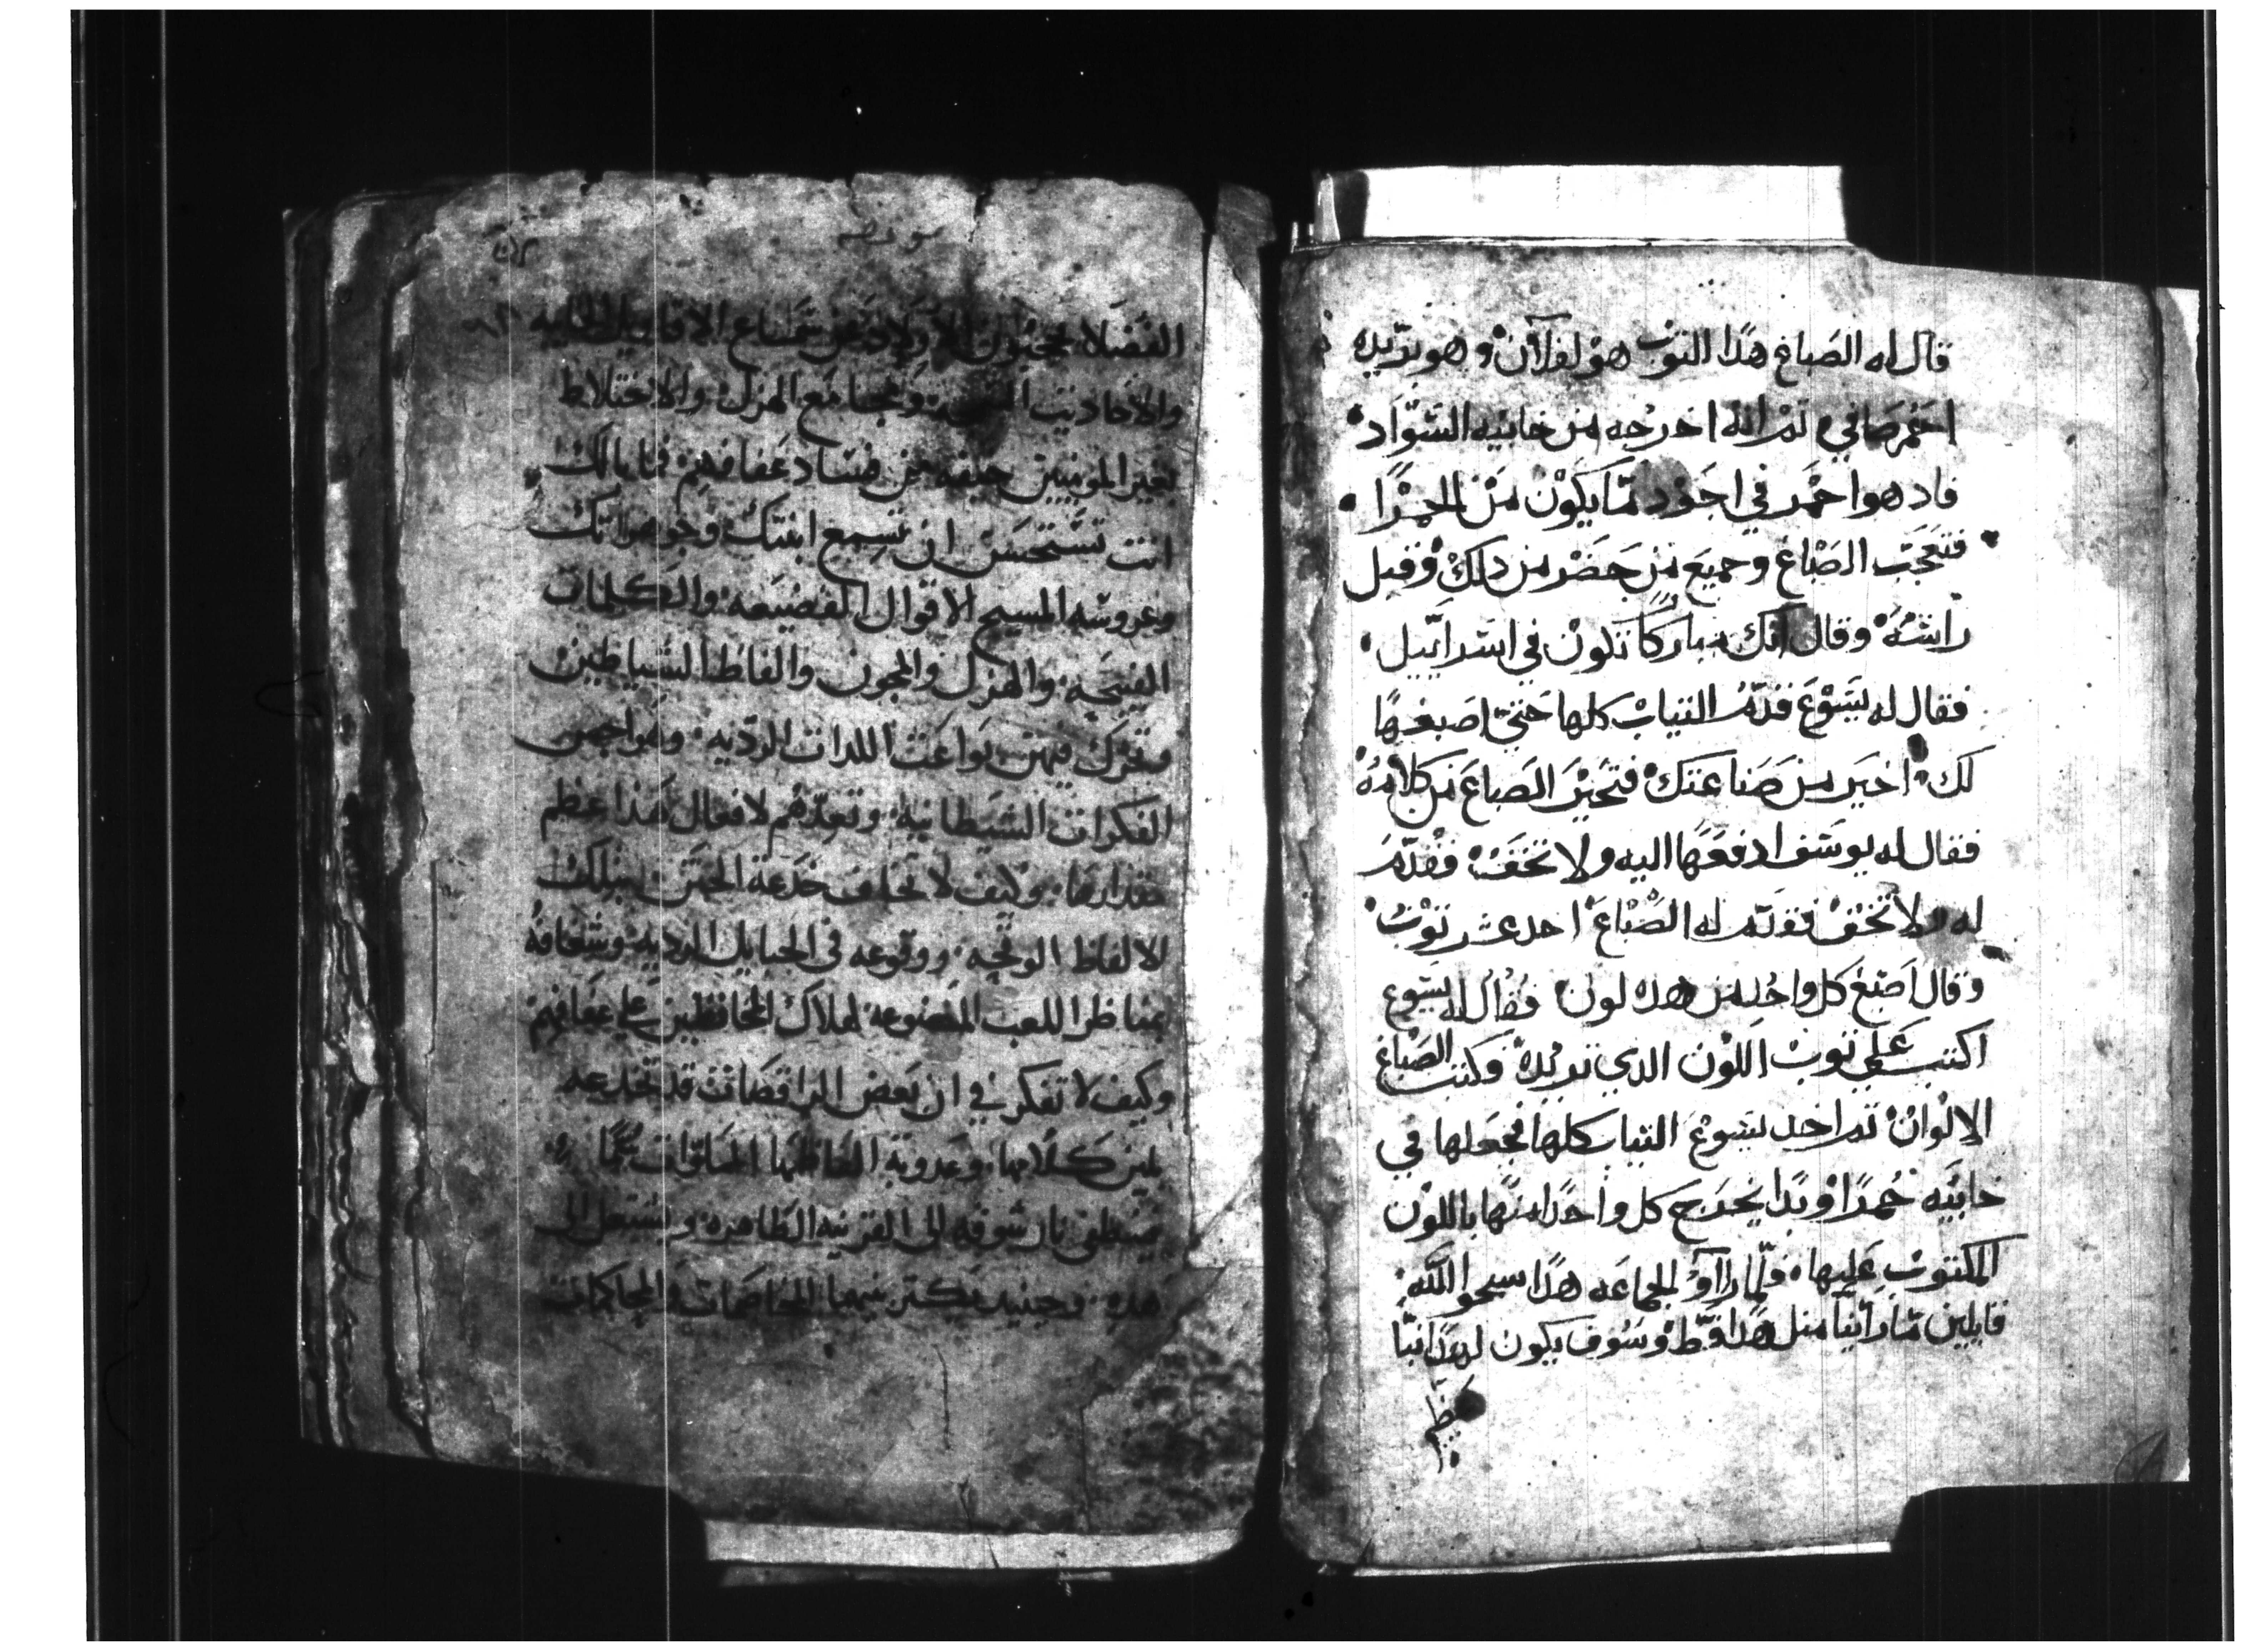 قال له الصباغ هذا التوب هو لفلان وهو يريده
احمر صافي تم انه اخرجه من خابيه السواد
فادهوا احمر في اجود ما يكون من الحمرا
فتعجب الصباغ وجميع من حضر من دلك وقبل
راسه وقال انك مباركا تكون في اسراييل
فقال له يسوع قدم التياب كلها حتي اصبغها
لك اخير من صناعتك فتحير الصباع من كلامه
فقال له يوسف ادفعها اليه ولا تخف فقدم
له ولا تخف فقدم له الصباغ احد عشر توب
وقال اصبغ كل واحد من هده لون فقال له يسوع
اكتب علي توب اللون الدي تريده وكتب الصباغ
الالوان تم اخد يسوع التياب كلها فجعلها في
خابيه حمرا وبدا يخرج كل واحدا منها باللون
المكتوب عليها فلما راوا الجماعه هدا سبحوا الله
قايلين ما راينا متل هدا قط وسوف يكون لهدا نبا
الفضلا الاولاد عن سماع الاقاويل
والاحاديت ومجامع الهزل والاختلاط
بغير المومنين خيفه من فساد عفافهم فما بالك
انت تستحسن ان تسمع ابنتك
وعروسه المسيح الاقوال الفضيعه والكلمات
القبيحه والهزل والمجون والفاظ الشياطين
وتحرك فيهن بواعت اللدات الرديه وهواجس
الفكرات الشيطانيه لافعال هدا عظم
مقدارها وكيف لا تخاف خدعة
الالفاظ الوقحه ووقوعه في الحبايل الرديه
بمناظر اللعب المصنوعه لهلاك المحافظين علي عفافهم
وكيف لا تفكر في ان بعض الراقصات قد تخدعه
بلين كلامها وعدوبة الفاظها
فينطفي نار شوقه الي القرينه الطاهره ويشتعل الي
هده وحينيد يكتر بينهما المخاصمات والمحاكمات